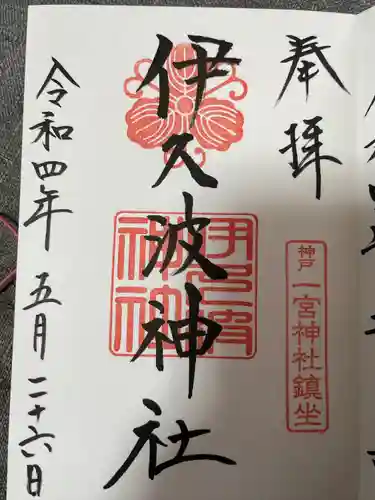 奉拝
神戸 一宮神社鎮坐
伊久波神社
伊久波神社
令和四年 五月二十六日